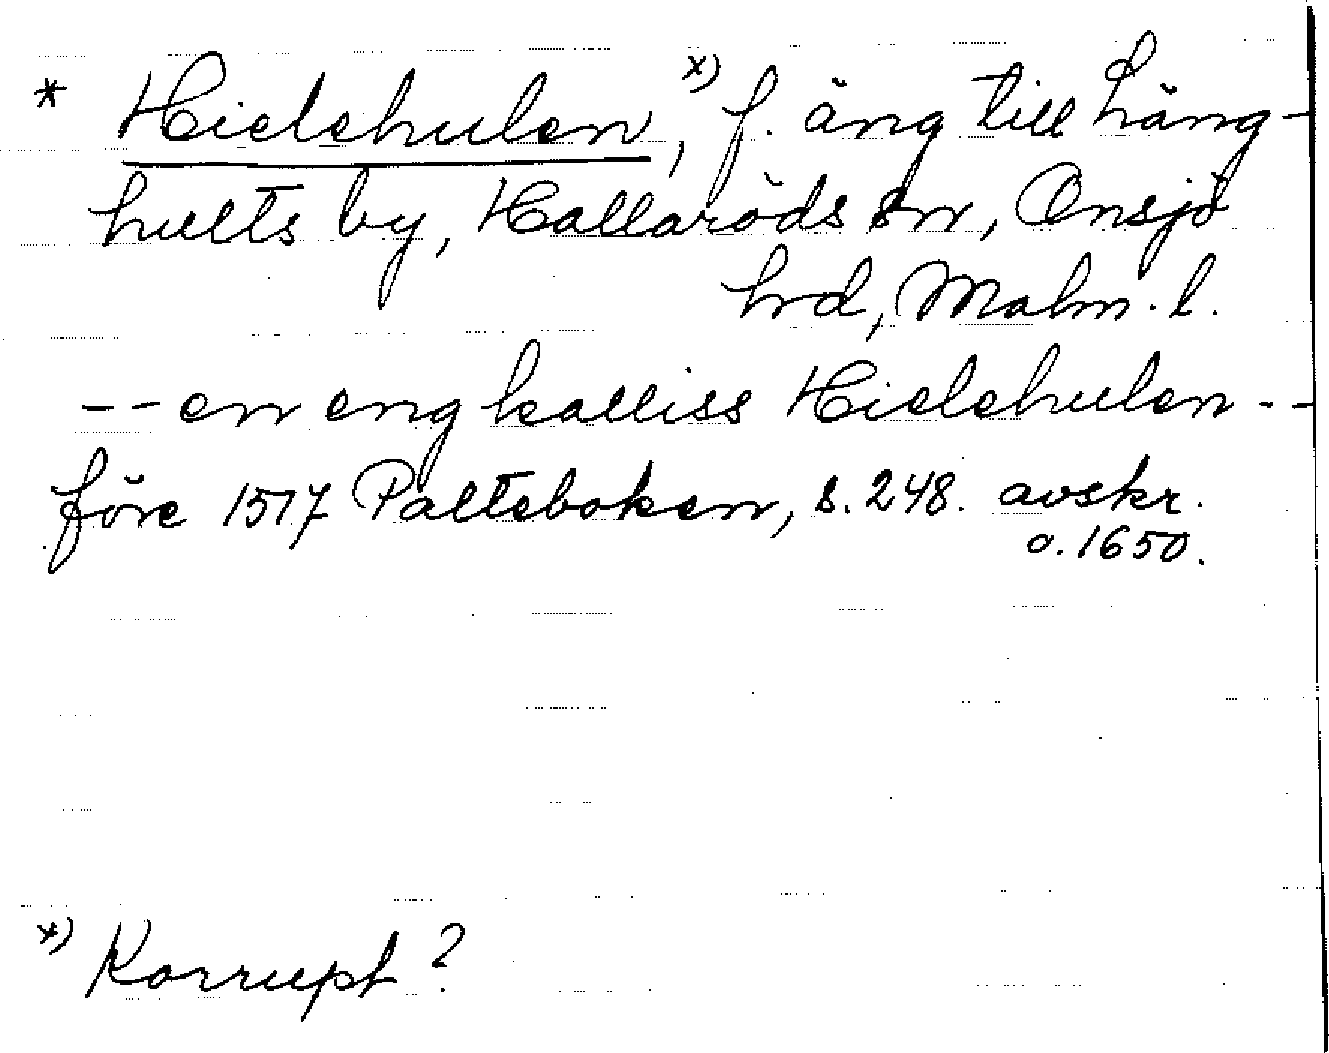 * Hielehulen, x) f. äng till Häng-
hults by, Hallaröds sn, Onsjö
hrd, Malm. l.
-- en eng kalliss Hielehulen --
före 1517 Palteboken, s. 248. avskr.
o. 1650.
x) Korrupt?